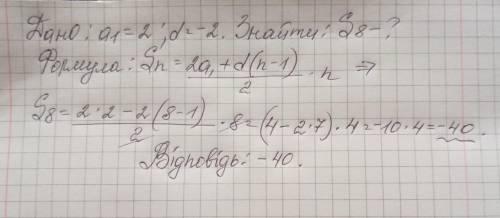 Дано: a₁ = 2; d = -2. Знайти: S₈ - ?
Формула: Sₙ = (2a₁ + d(n-1))/2 · n ⇒
S₈ = (2·2 - 2(8-1))/2 · 8 = (4 - 2·7)·4 = -10·4 = -40.
Відповідь: -40.